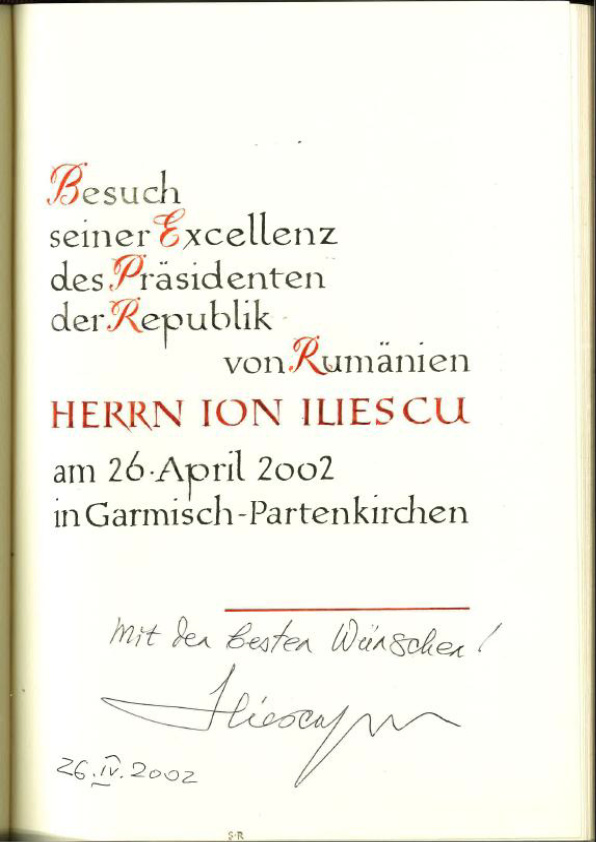 Besuch
seiner Excellenz
des Präsidenten
der Republik
von Rumänien
HERRN ION ILIESCU
am 26·April 2002
in Garmisch-Partenkirchen
Mit den besten Wünschen!
Iliescu
26.IV.2002
S·R